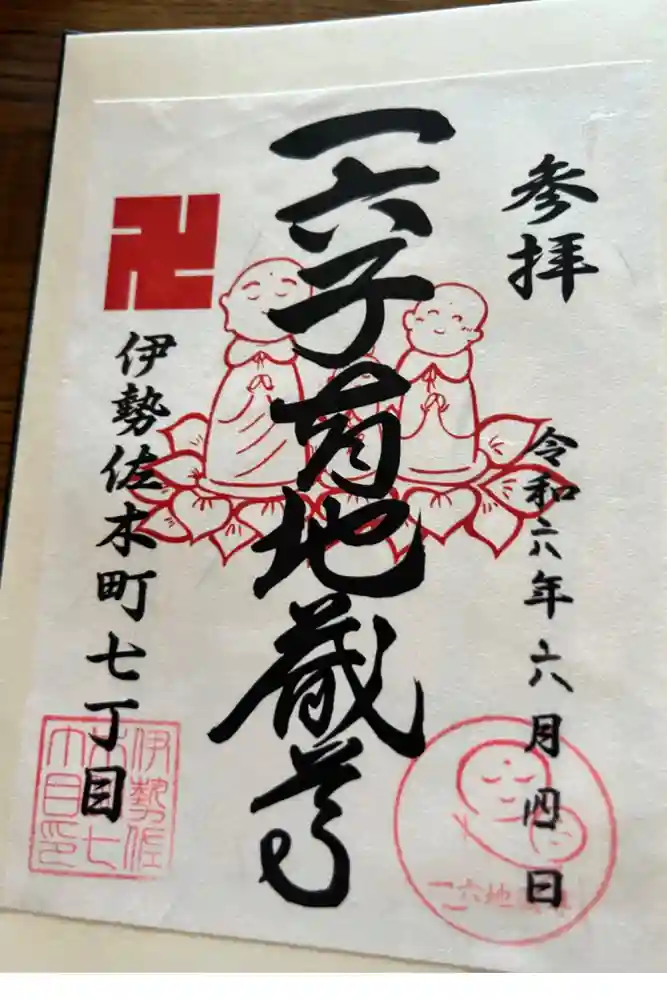 参拝
令和六年六月四日
一六子育地蔵尊
伊勢佐木町七丁目
伊勢佐
木七
丁目印